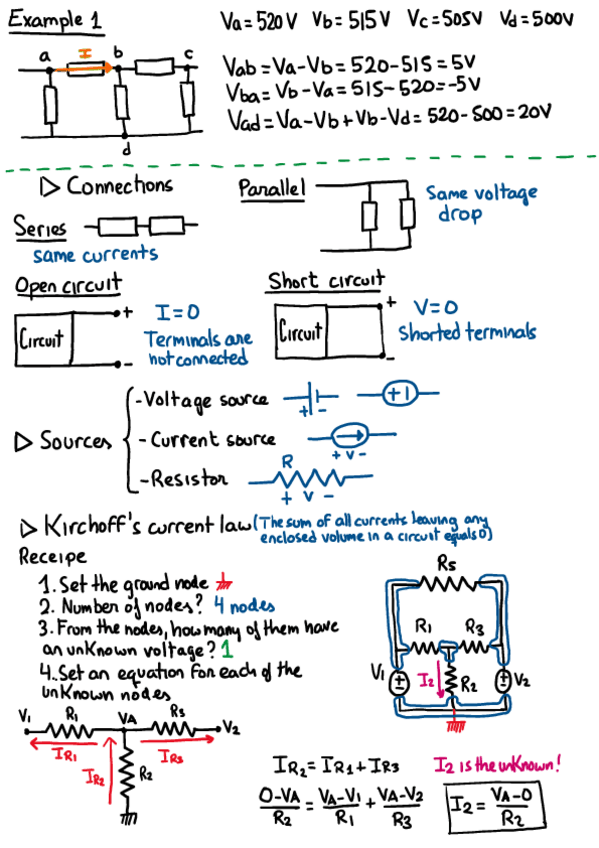 Example 1
Va=520V Vb=515V Vc=505V Vd=500V
a I b c
d
Vab=Va-Vb=520-515=5V
Vba=Vb-Va=515-520=-5V
Vad=Va-Vb+Vb-Vd=520-500=20V
▷ Connections
Parallel
Same voltage
drop
Series
same currents
Open circuit
Circuit
+
-
I=0
Terminals are
not connected
Short circuit
Circuit
+
-
V=0
Shorted terminals
▷ Sources
-Voltage source
+ -
+1
-Current source
+ V -
-Resistor
R
+ V -
▷ Kirchoff's current law (The sum of all currents leaving any
enclosed volume in a circuit equals 0)
Receipe
1. Set the ground node
2. Number of nodes? 4 nodes
3. From the nodes, how many of them have
an unknown voltage? 1
4. Set an equation for each of the
unknown nodes
R5
R1 R3
V1 I2 R2 V2
+
-
+
-
V1 R1 VA R3 V2
IR1 IR2 R2 IR3
IR2=IR1+IR3
I2 is the unknown!
0-VA/R2 = VA-V1/R1 + VA-V2/R3
I2= VA-0/R2